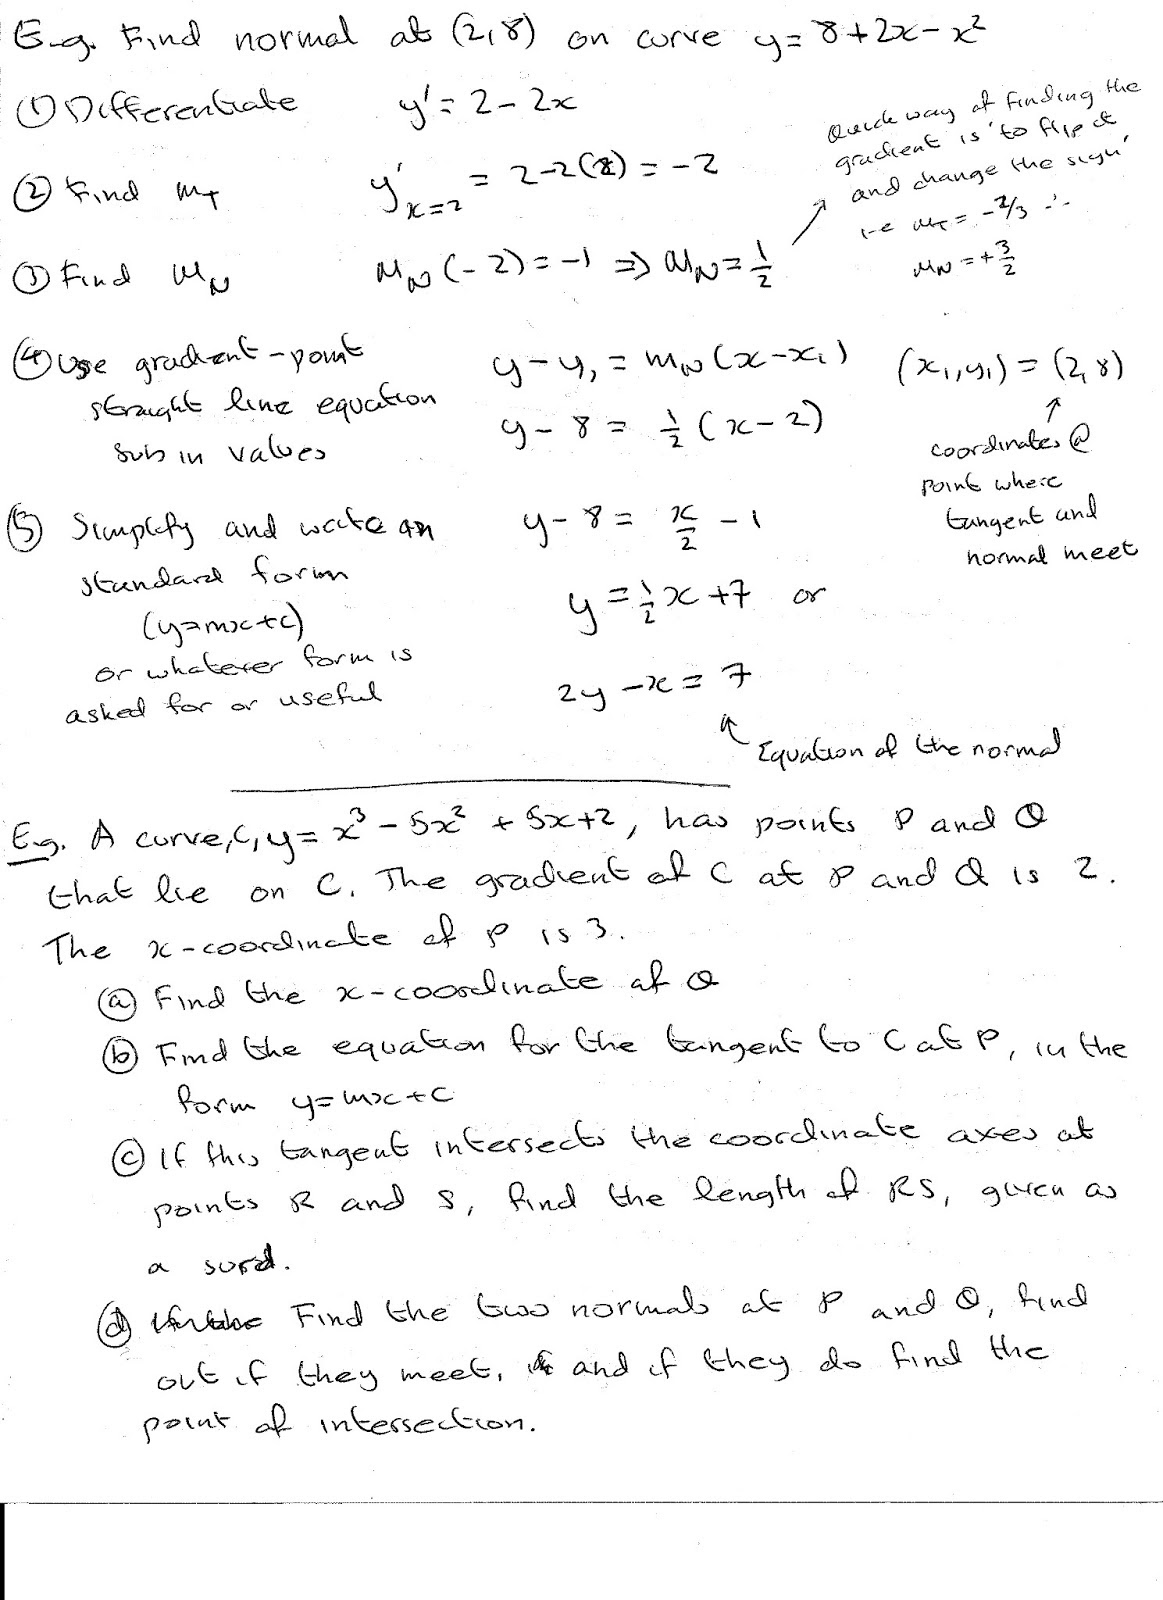 E.g. Find normal at (2,8) on curve y = 8+2x-x²
① Differentiate y' = 2-2x
Quick way of finding the
gradient is 'to flip it
and change the sign'
i.e m_T = -2/3 ∴
m_N = +3/2
② Find m_T y'_{x=2} = 2-2(2) = -2
③ Find m_N m_N(-2) = -1 ⇒ m_N = 1/2
④ Use gradient-point
straight line equation
sub in values
y-y₁ = m_N(x-x₁) (x₁,y₁) = (2,8)
y-8 = 1/2(x-2)
↑
coordinates @
point where
tangent and
normal meet
⑤ Simplify and write in
standard form
(y=mx+c)
or whatever form is
asked for or useful
y-8 = x/2 - 1
y = 1/2x+7 or
2y-x = 7
Equation of the normal
E.g. A curve, C, y = x³-5x²+5x+2, has points P and Q
that lie on C. The gradient of C at P and Q is 2.
The x-coordinate of P is 3.
ⓐ Find the x-coordinate of Q
ⓑ Find the equation for the tangent to C at P, in the
form y=mx+c
ⓒ If this tangent intersects the coordinate axes at
points R and S, find the length of RS, given as
a surd.
ⓓ Find the two normals at P and Q, find
out if they meet, and if they do find the
point of intersection.